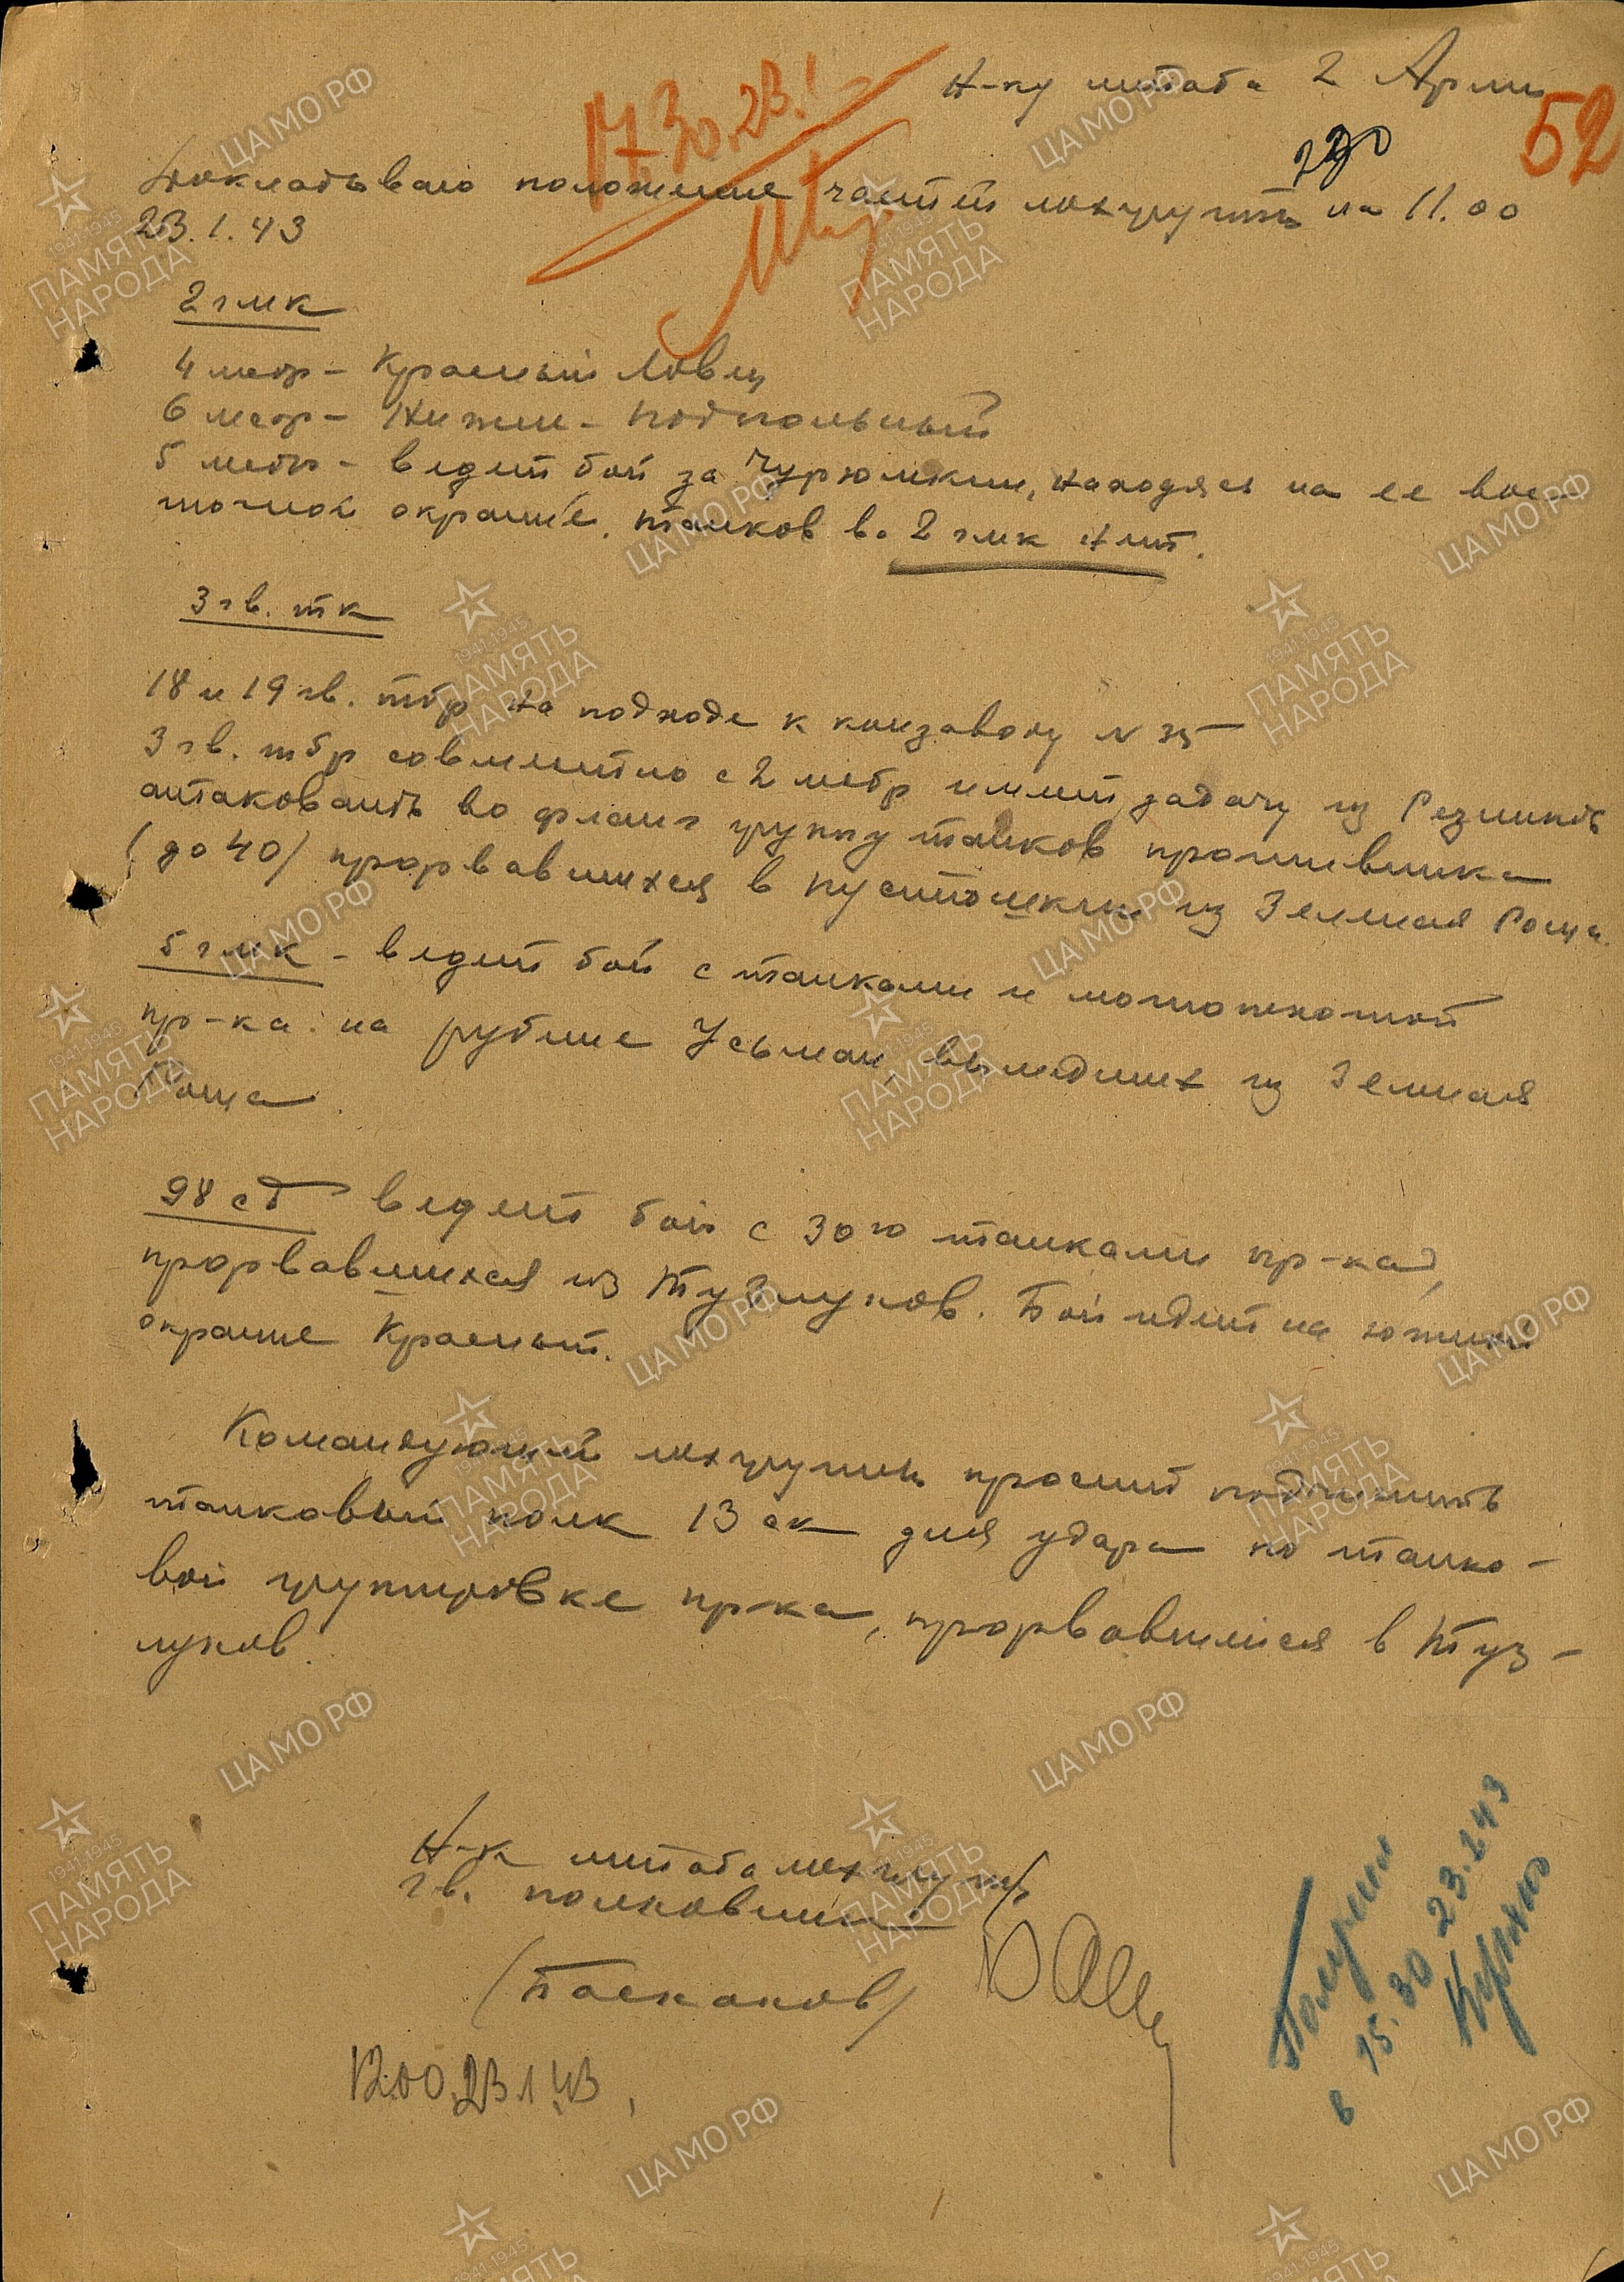 Н-ку штаба 2 Армии
52
17.30. 23.1
Докладываю положение частей мехгруппы на 11.00
23.1.43
2 гмк
4 мебр – Красный Ловец
6 мебр – Нижне-Подпольный
5 мебр – ведет бой за Чурюмкин, находясь на ее вос-
точной окраине. Танков в 2 гмк нет.
3 гв. тк
18 и 19 гв. тбр на подходе к конзаводу №
3 гв. тбр совместно с 2 мебр имеет задачу из Резников
атаковать во фланг группу танков противника
(до 40) прорвавшихся в Пустошкин из Зеленая Роща.
5 гмк – ведет бой с танками и мотопехотой
пр-ка на рубеже Усьман, вышедших из Зеленая
Роща.
98 сд ведет бой с 30ю танками пр-ка,
прорвавшихся из Тузлуков. Бой идет на южной
окраине Красный.
Командующий мехгруппы просит подчинить
танковый полк 13 ск для удара по танко-
вой группировке пр-ка, прорвавшейся в Туз-
луков.
Н-к штаба мехгруппы
гв. полковник
(Баскаков)
12.00. 23.1.43.
Получен
в 15.30 23.1.43
ЦА МО РФ
1941-1945
ПАМЯТЬ
НАРОДА